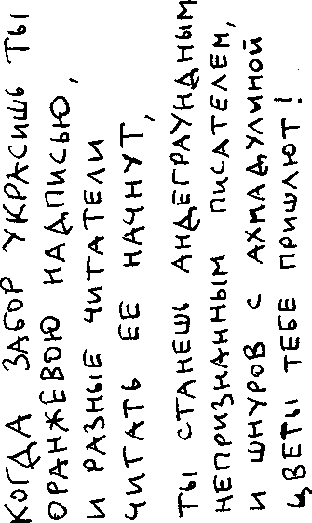 КОГДА ЗАБОР УКРАСИШЬ ТЫ
ОРАНЖЕВОЮ НАДПИСЬЮ,
И РАЗНЫЕ ЧИТАТЕЛИ
ЧИТАТЬ ЕЕ НАЧНУТ,
ТЫ СТАНЕШЬ АНДЕГРАУНДНЫМ
НЕПРИЗНАННЫМ ПИСАТЕЛЕМ,
И ШНУРОВ С АХМАДУЛИНОЙ
ЦВЕТЫ ТЕБЕ ПРИШЛЮТ!